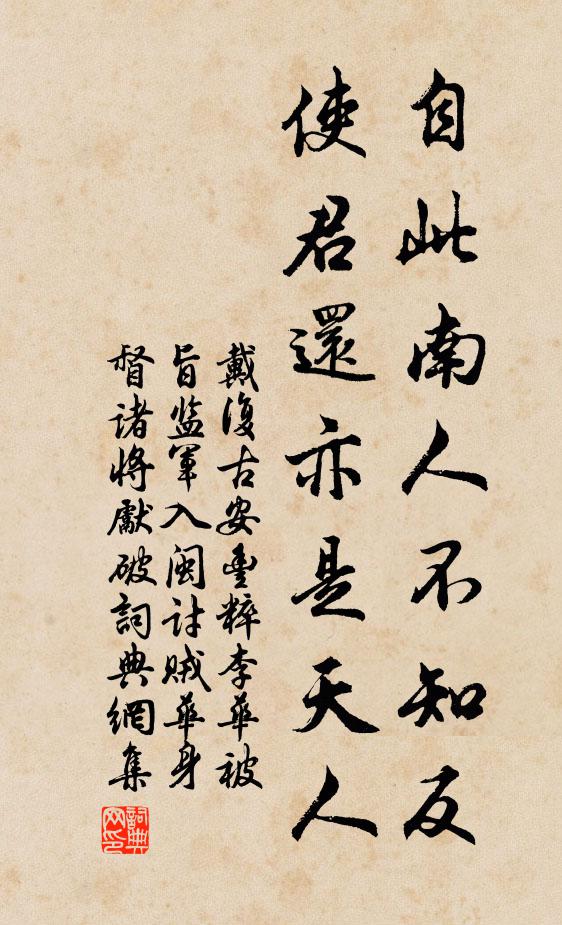 自此南人不知反
使君還亦是天人
戴復古安豊粹李華被
旨监軍入闽讨贼華身
督诸将獻破詞典網集
詞典网印